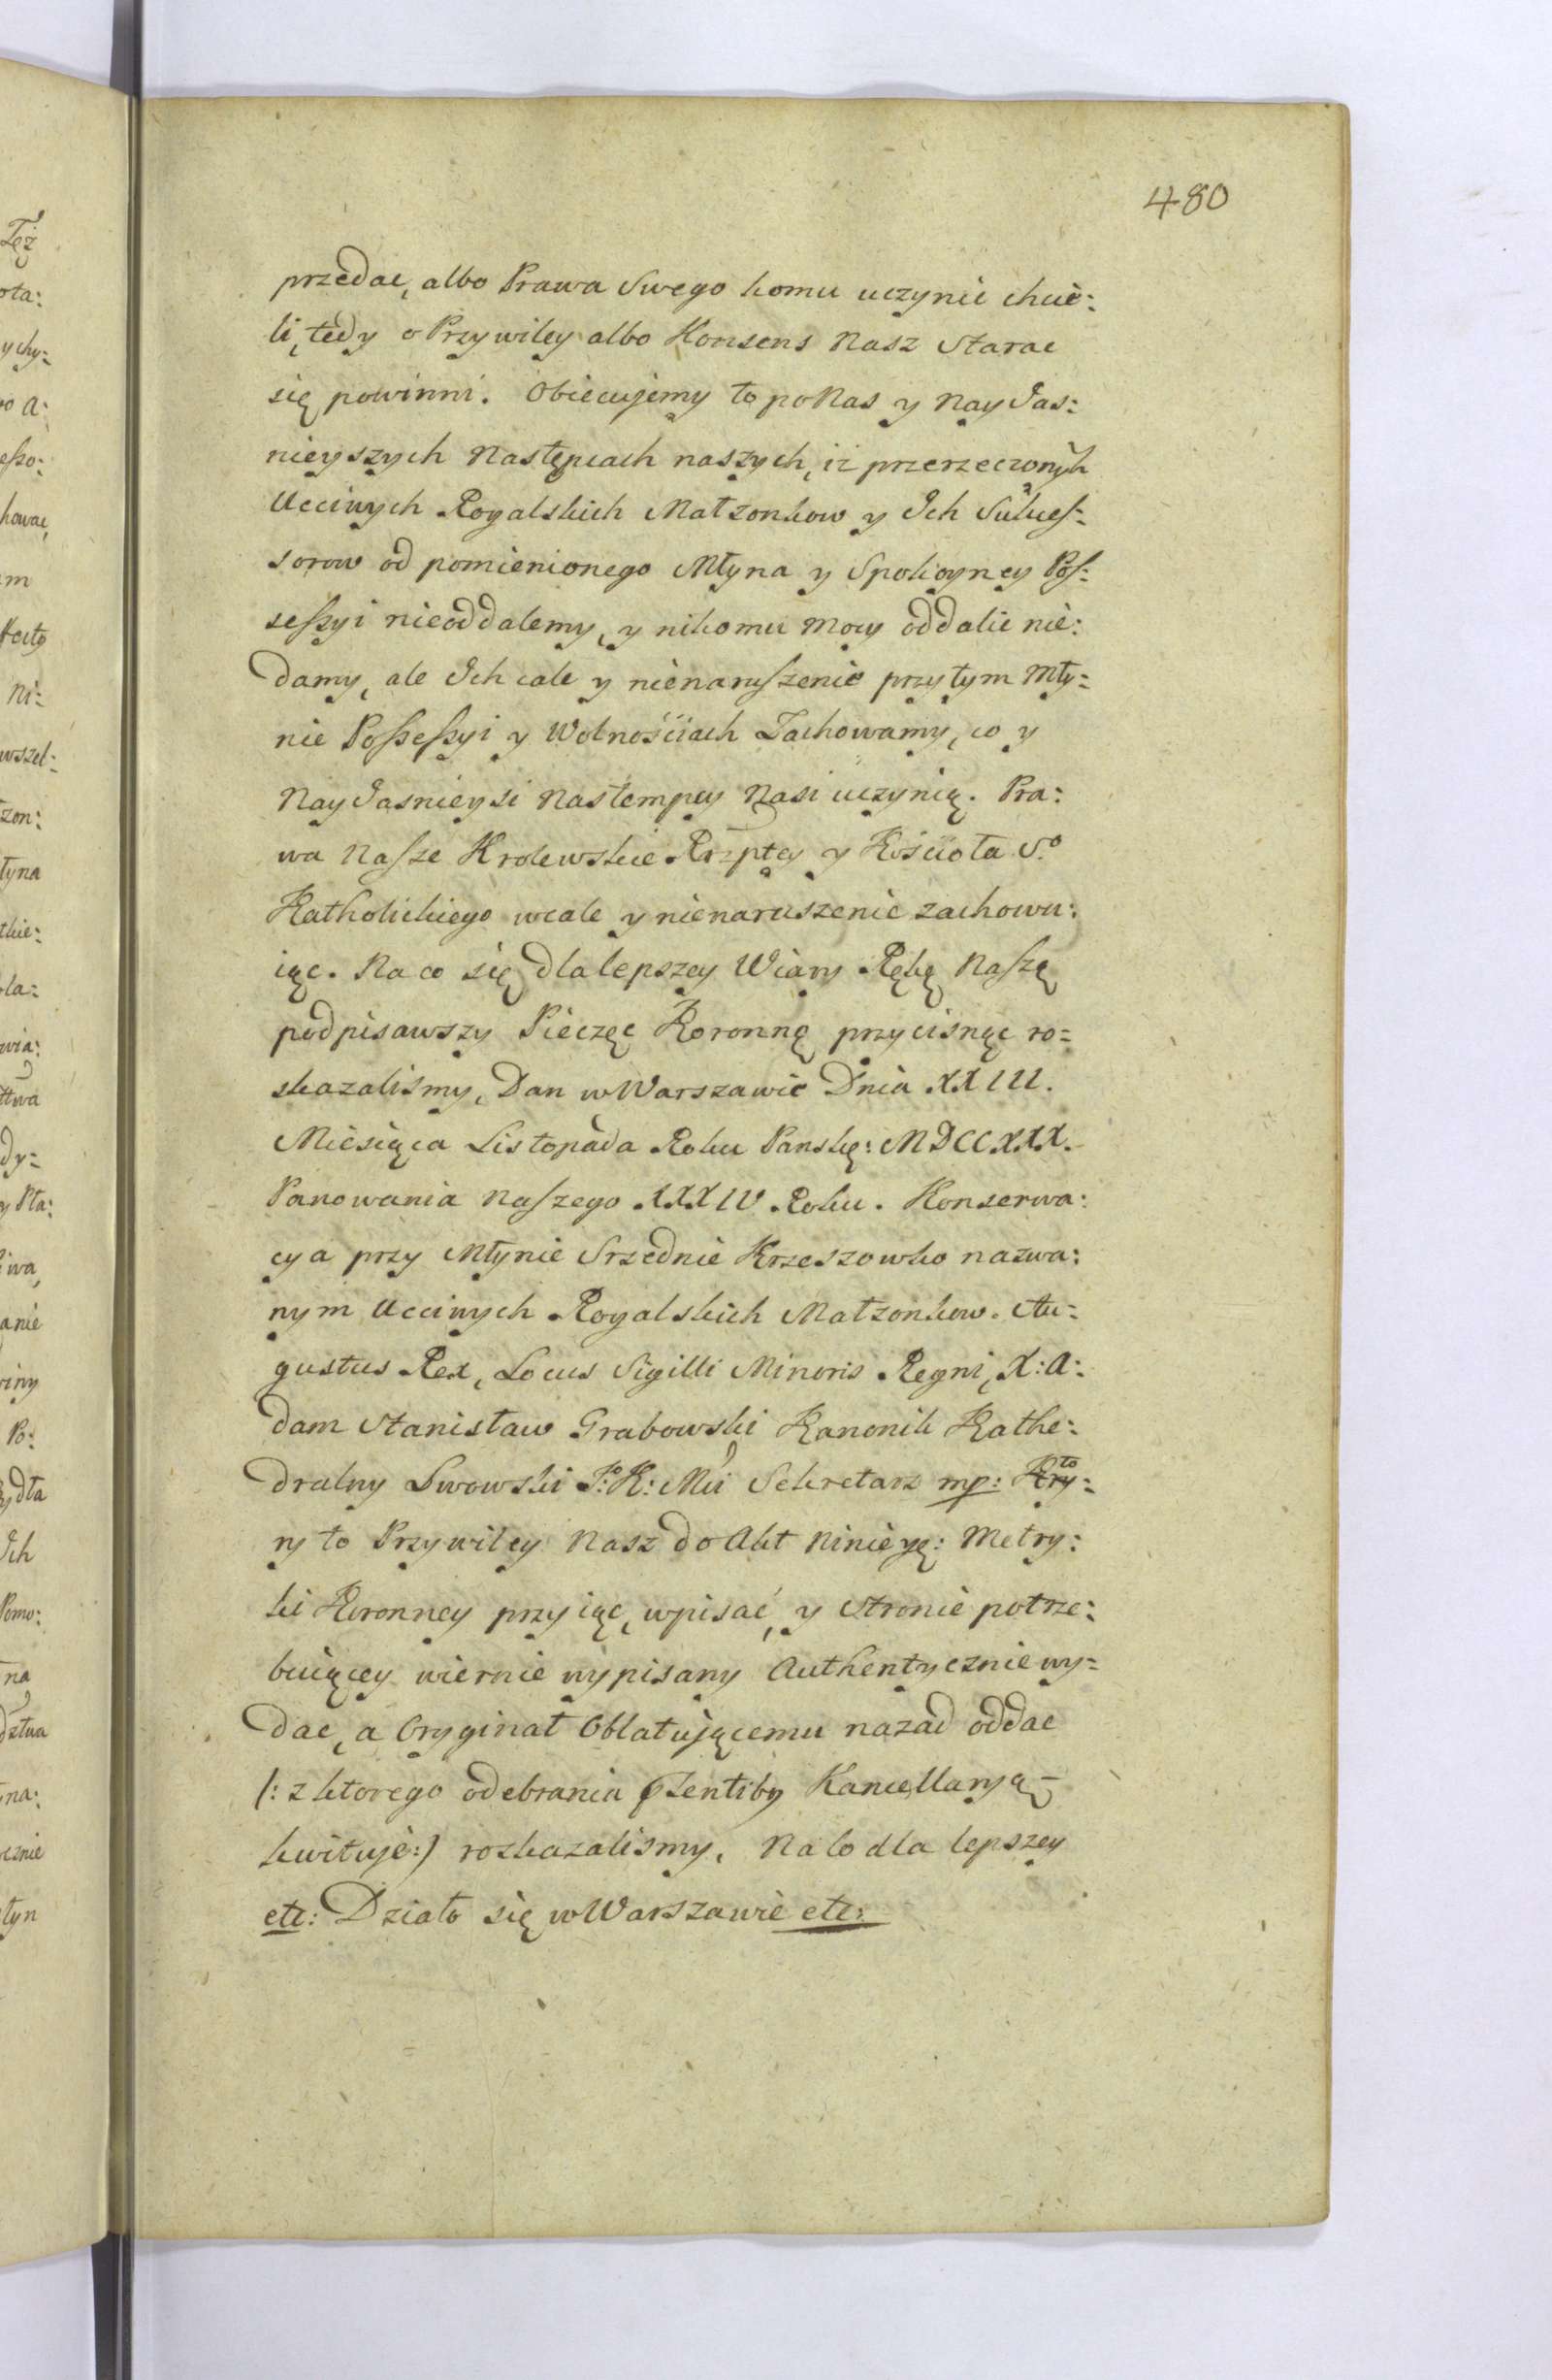 480
przedac, albo Prawa Swego komu uczynic chcie:
li, tedy o Przywiley albo Konsens Nasz Starac
się powinni. Obiecujemy to po Nas y Nay Jas:
nieyszych Następcach naszych, iż przerzeczonych
Ucciwych Rogalskich Małzonkow y Ich Sukceſ:
sorow od pomienionego Młyna y Spokoyney Poſ:
seſsyi nieoddalemy, y nikomu Mocy oddalic nie:
damy, ale Ich cale y nienaruſzenie przy tym Mły:
nie Poſseſsyi y Wolnościach Zachowamy, co y
Nay Jasnieysi Nastempcy Nasi uczynią. Pra:
wa Naſze Krolewskie Rzptey y Kościoła S.o
Katholickiego wcale y nienaruszenie zachowu:
iąc. Na co się dla lepszey Wiary Ręką Naſzą
podpisawszy Pieczęc Koronną przycisnąc ro=
skazalismy, Dan w Warszawie Dnia XXIII.
Miesiąca Listopada Roku Panskę: MDCCXXX.
Panowania Naſzego XXXIV. Roku. Konserwa:
cya przy Młynie Srzednie Krzeszowko nazwa:
nym Ucciwych Rogalskich Małzonkow. Au:
gustus Rex, Locus Sigilli Minoris Regni, X: A:
dam Stanisław Grabowski Kanonik Kathe:
dralny Lwowski J: K: Mći Sekretarz mp: Kto:
ry to Przywiley Nasz do Akt Ninieyę: Metry:
ki Koronney przyiąc, wpisać, y Stronie potrze:
buiącey wiernie wypisany Authentycznie wy=
dac, a Oryginał Oblatującemu nazad oddac
(: z ktorego odebrania ꝑſentiby Kancellaryą
kwituje:) rozkazalismy. Na co dla lepszey
etc: Działo się w Warszawie etc: